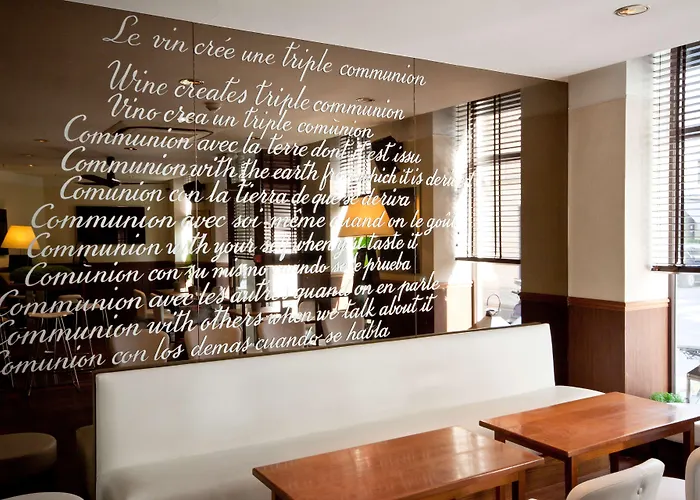 Le vin crée une triple communion
Wine creates triple communion
Vino crea un triple comùnion
Communion avec la terre dont il est issu
Communion with the earth from which it is derived
Comunion con la tierra de que se deriva
Communion avec soi-même quand on le goûte
Communion with your self when you taste it
Comùnion con su mismo cuando se le prueba
Communion avec les autres quand on en parle
Communion with others when we talk about it
Comunion con los demas cuando se habla